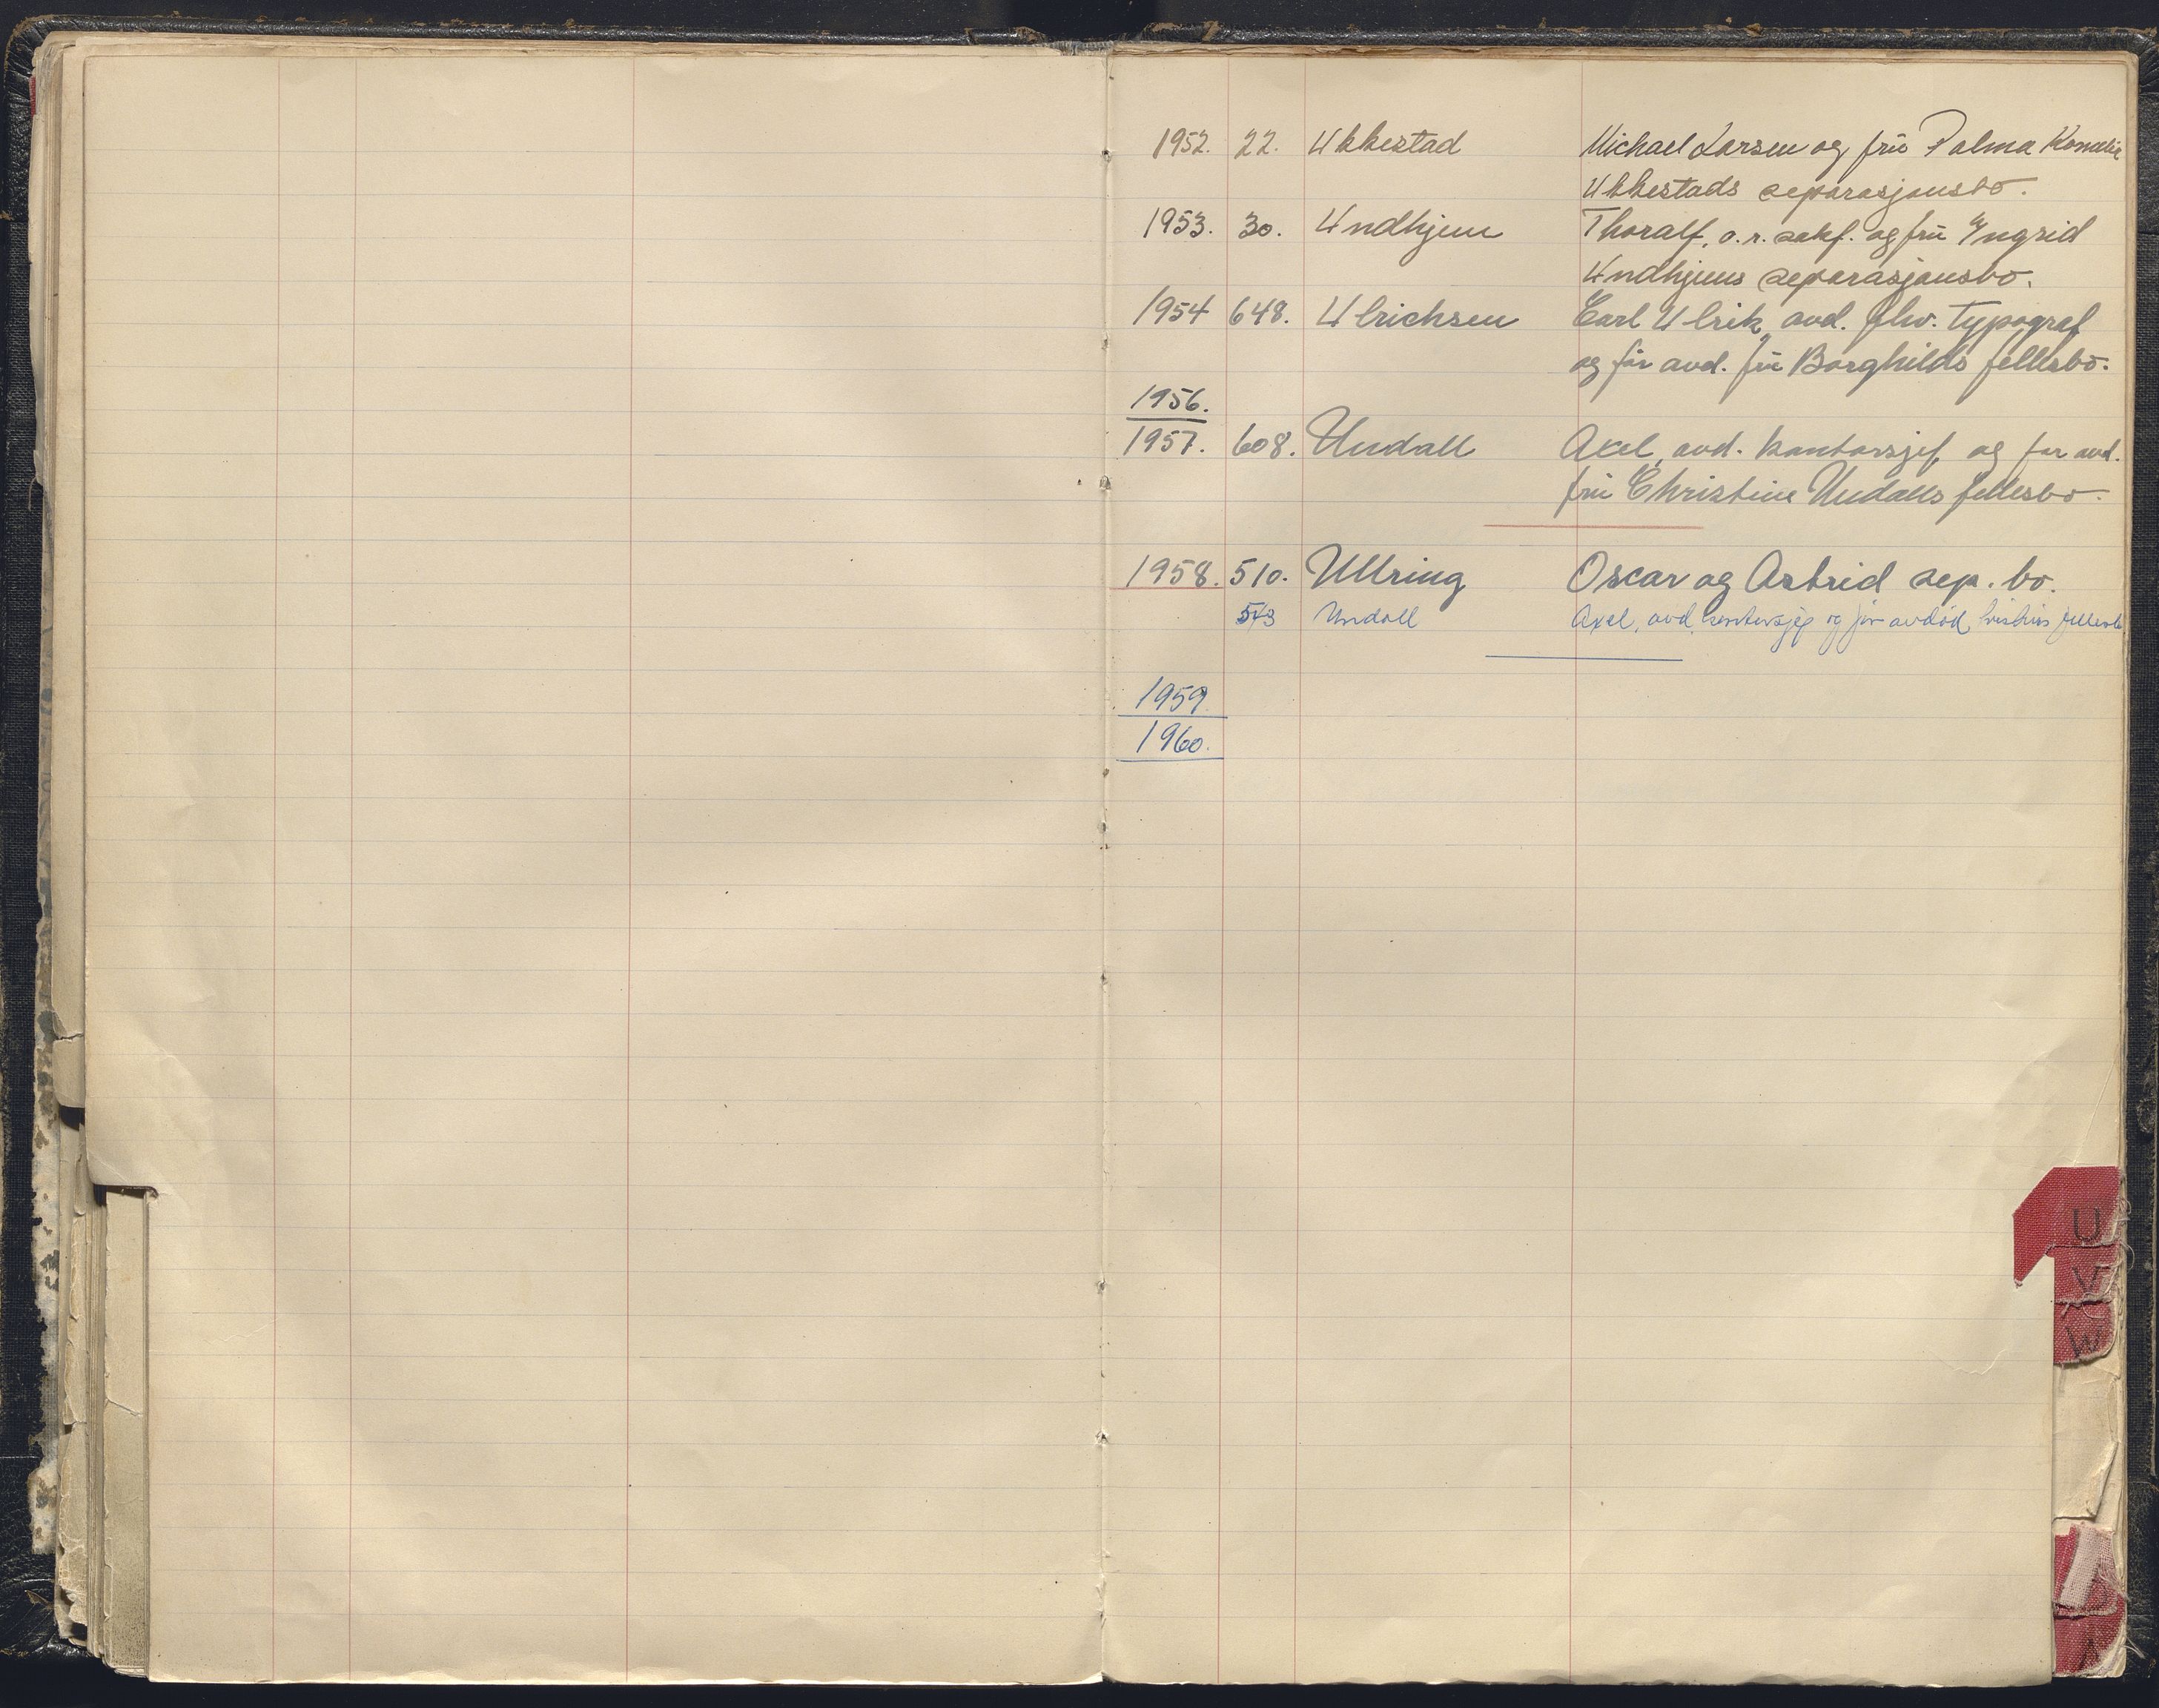 1952. 22. Ukkestad Michael Larsen og fru Palma
Ukkestads separasjonsbo.
1953. 30. Undhjem Thoralf, o.r. sakf. og fru Yngrid
Undhjems separasjonsbo.
1954 648. Ulrichsen Carl Ulrik, avd. fhv. typograf
og før avd. fru Borghilds fellesbo.
1956.
1957. 608. Undall Axel, avd. kontorsjef og før avd.
fru Christine Undalls fellesbo.
1958. 510. Ullring Oscar og Astrid sep. bo.
573 Undall Axel, avd. kontorsjef og før avdød fellesbo
1959.
1960.
U
V
W